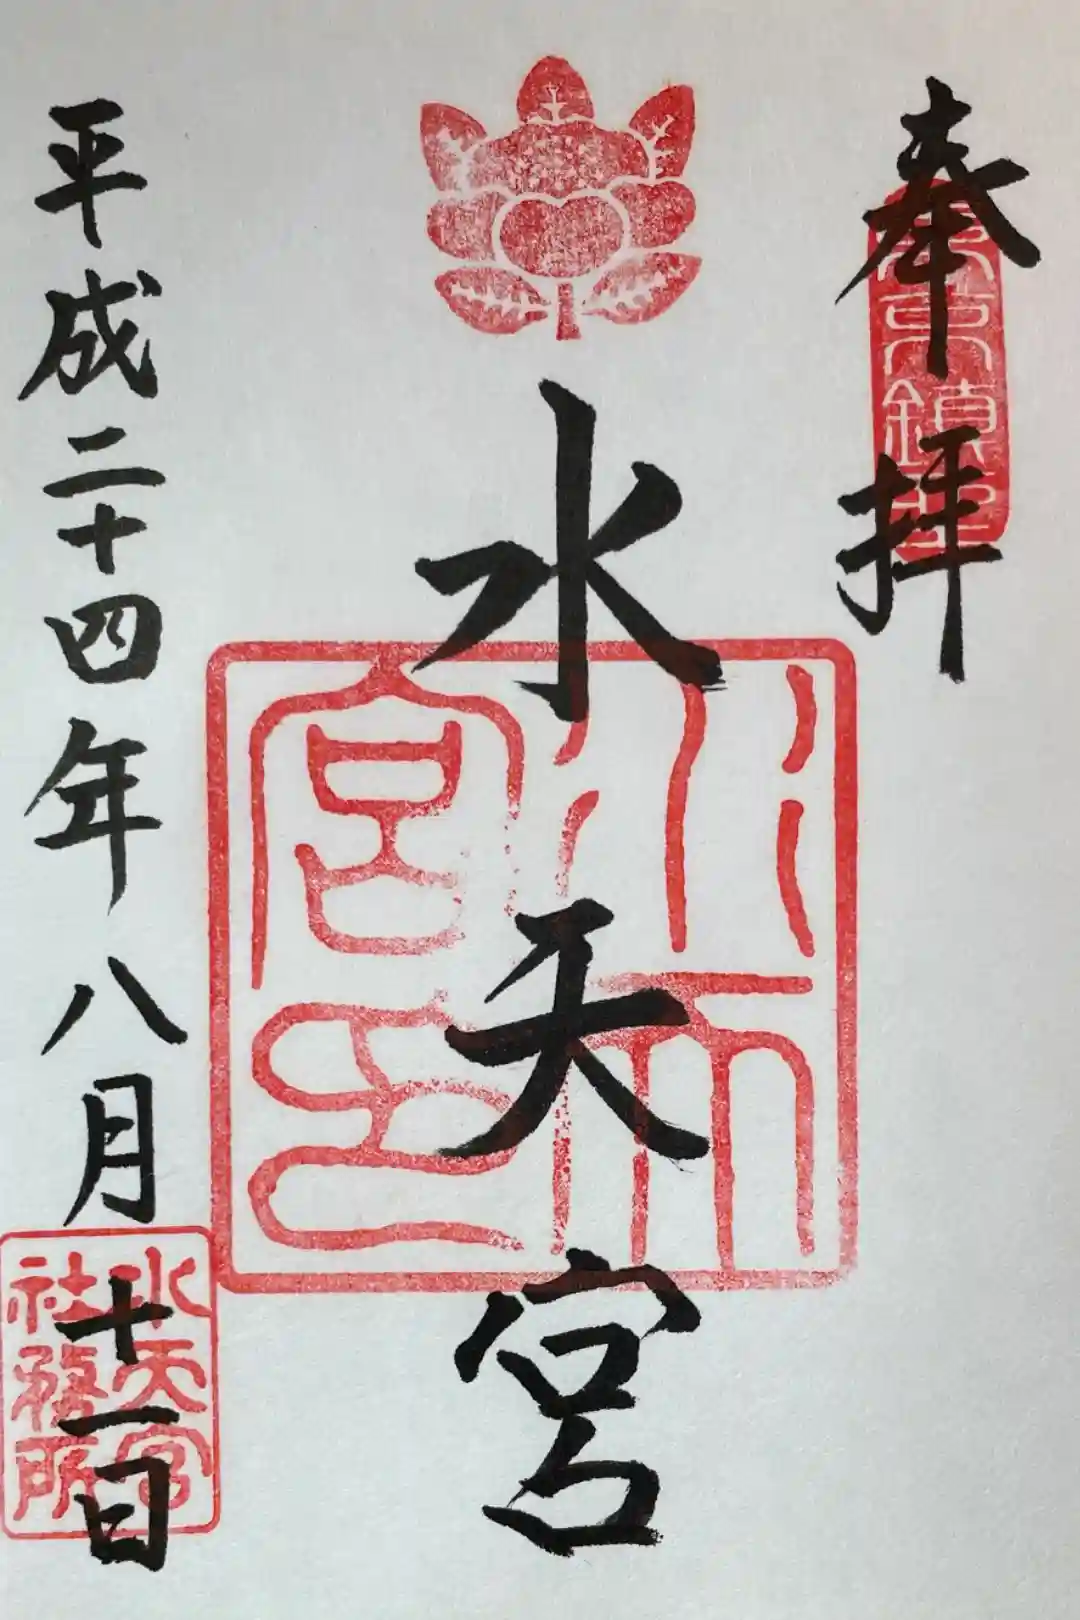 奉拝
東京鎮座
水天宮
水天
宮印
平成二十四年八月十一日
水天宮
社務所